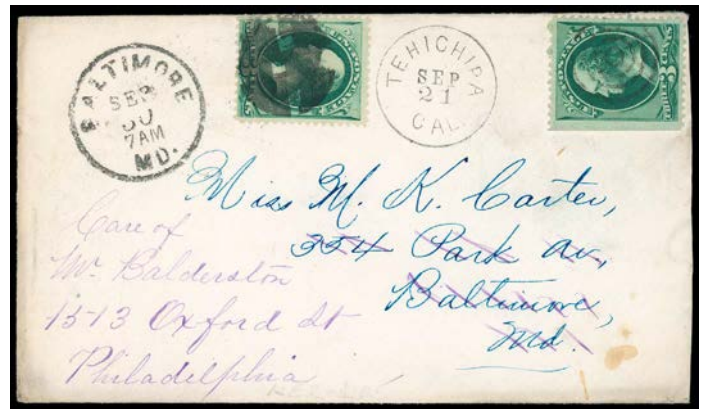 BALTIMORE
SEP
30
7AM
MD.
TEHICHIPA
SEP
21
CAL.
Miss M. K. Carter,
354 Park Av,
Baltimore,
Md.
Care of
Mr. Balderston
1513 Oxford St
Philadelphia